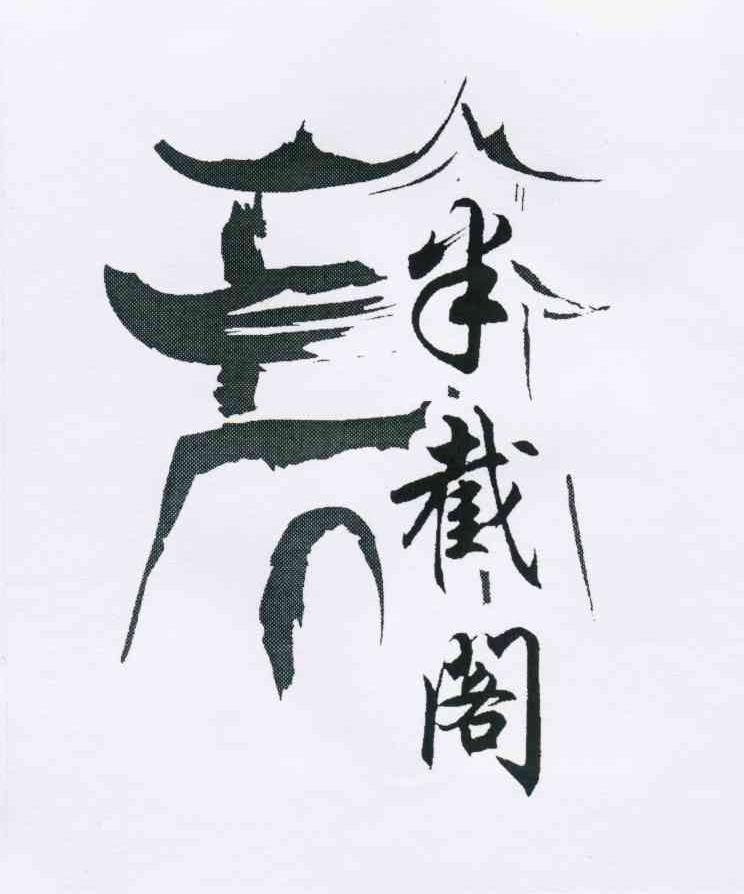 半截阁